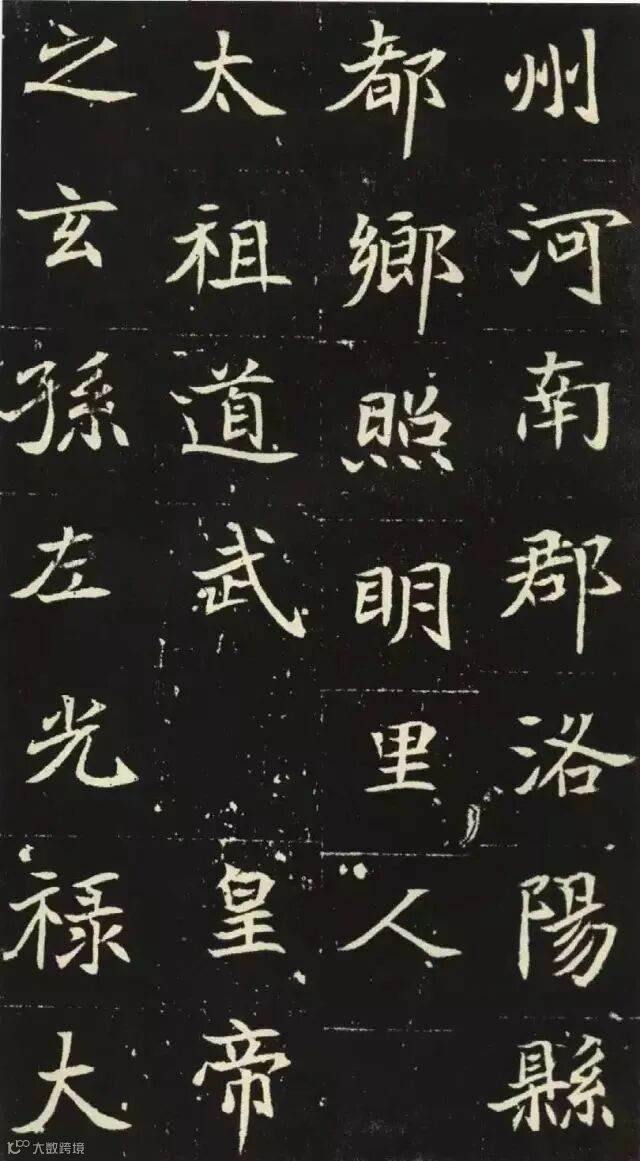 州河南郡洛陽縣
都鄉照明里人
太祖道武皇帝
之玄孫左光禄大
大数跨境